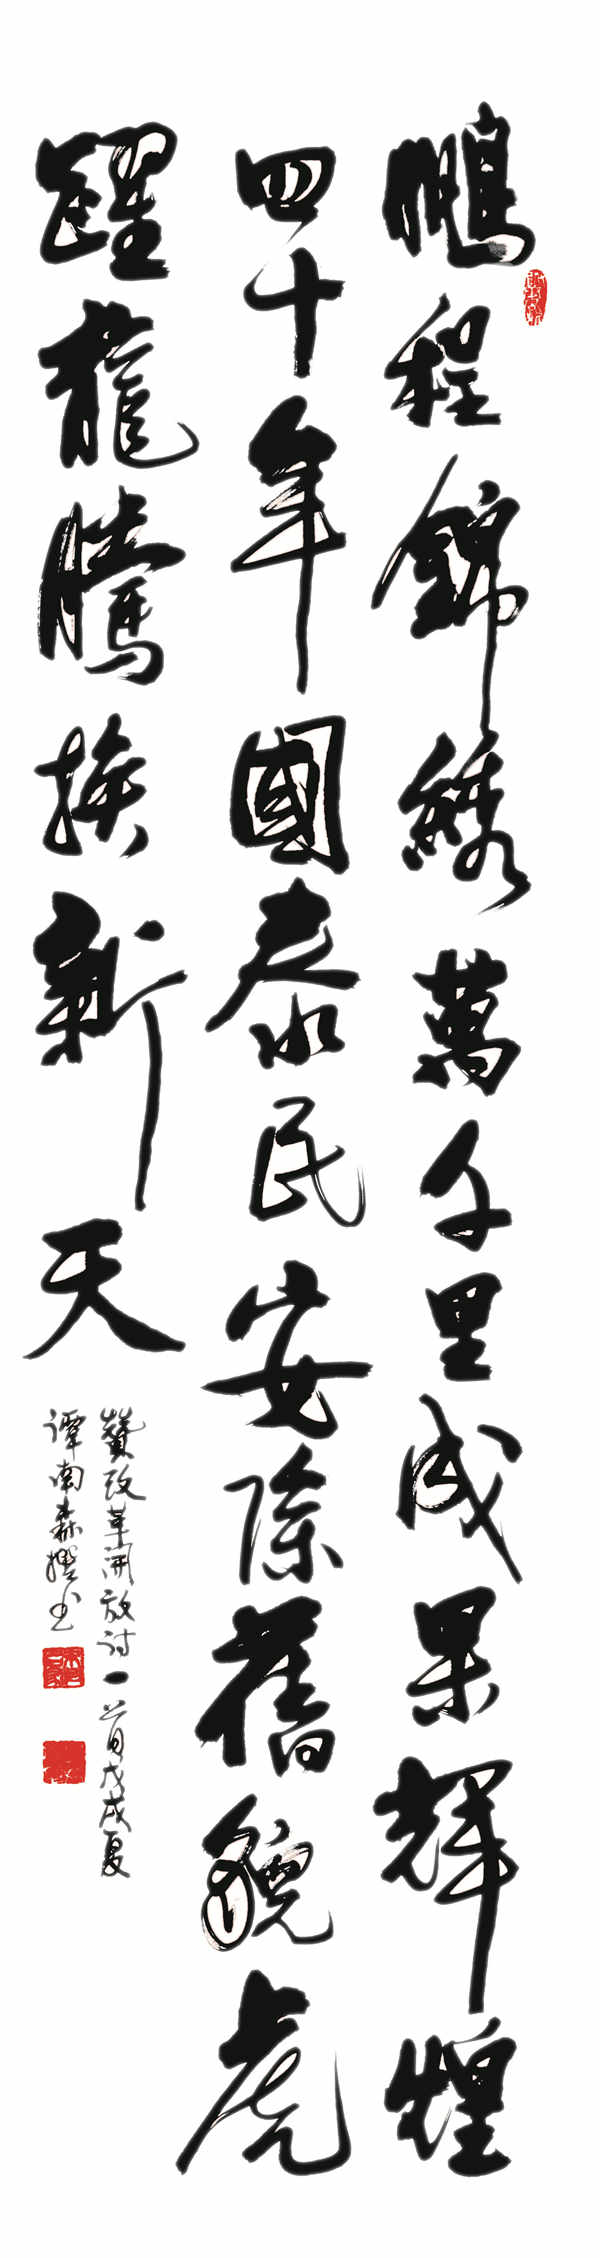 鵬程錦綉萬千里成果輝煌
四十年國泰民安除舊貌虎
躍龍騰換新天
贊改革開放詩一首戊戌夏
譚南森撰书